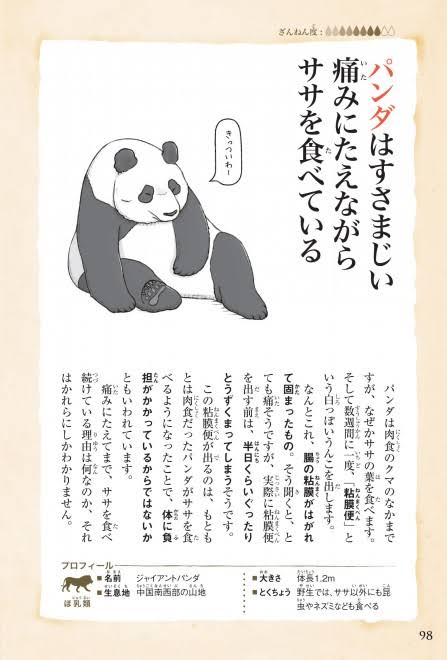 ざんねん度:
パンダはすさまじい
痛みにたえながら
ササを食べている
きっついわー
パンダは肉食のクマのなかまで
すが、なぜかササの葉を食べます。
そして数週間に一度、「粘膜便」と
いう白っぽいうんこを出します。
なんとこれ、腸の粘膜がはがれ
て固まったもの。そう聞くと、と
ても痛そうですが、実際に粘膜便
を出す前は、半日くらいぐったり
とうずくまってしまうそうです。
この粘膜便が出るのは、もとも
とは肉食だったパンダがササを食
べるようになったことで、体に負
担がかかっているからではないか
ともいわれています。
痛みにたえてまで、ササを食べ
続けている理由は何なのか、それ
はかれらにしかわかりません。
プロフィール
ほ乳類
■名前 ジャイアントパンダ
■生息地 中国南西部の山地
■大きさ 体長1.2m
■とくちょう 野生では、ササ以外にも昆
虫やネズミなども食べる
98